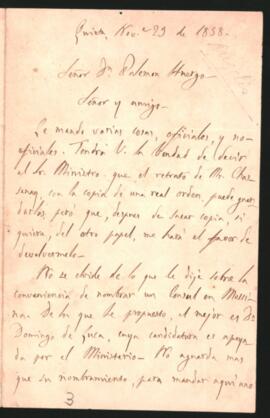 Quinta, Nov.e 23 de 1858.
Señor Dn. Palemon Huergo
Señor y amigo.
Le mando varias cosas, oficiales, y no
oficiales. Tendrá V. la bondad de decir
al Sr. Ministro que el retrato de Mr.
con la copia de una real orden, puede guar
darlos pero que, despues de sacar copia, si
quiere, del otro papel, me hará el favor de
devolvermelo.
No se olvide de lo que le dije sobre la
conveniencia de nombrar un Consul en Messi
na. De los que he propuesto, el mejor es Dn.
Domingo de Luca, cuya candidatura es apoya
da por el Ministerio. aguarda mas
que su nombramiento, para mandar aquí uno
3